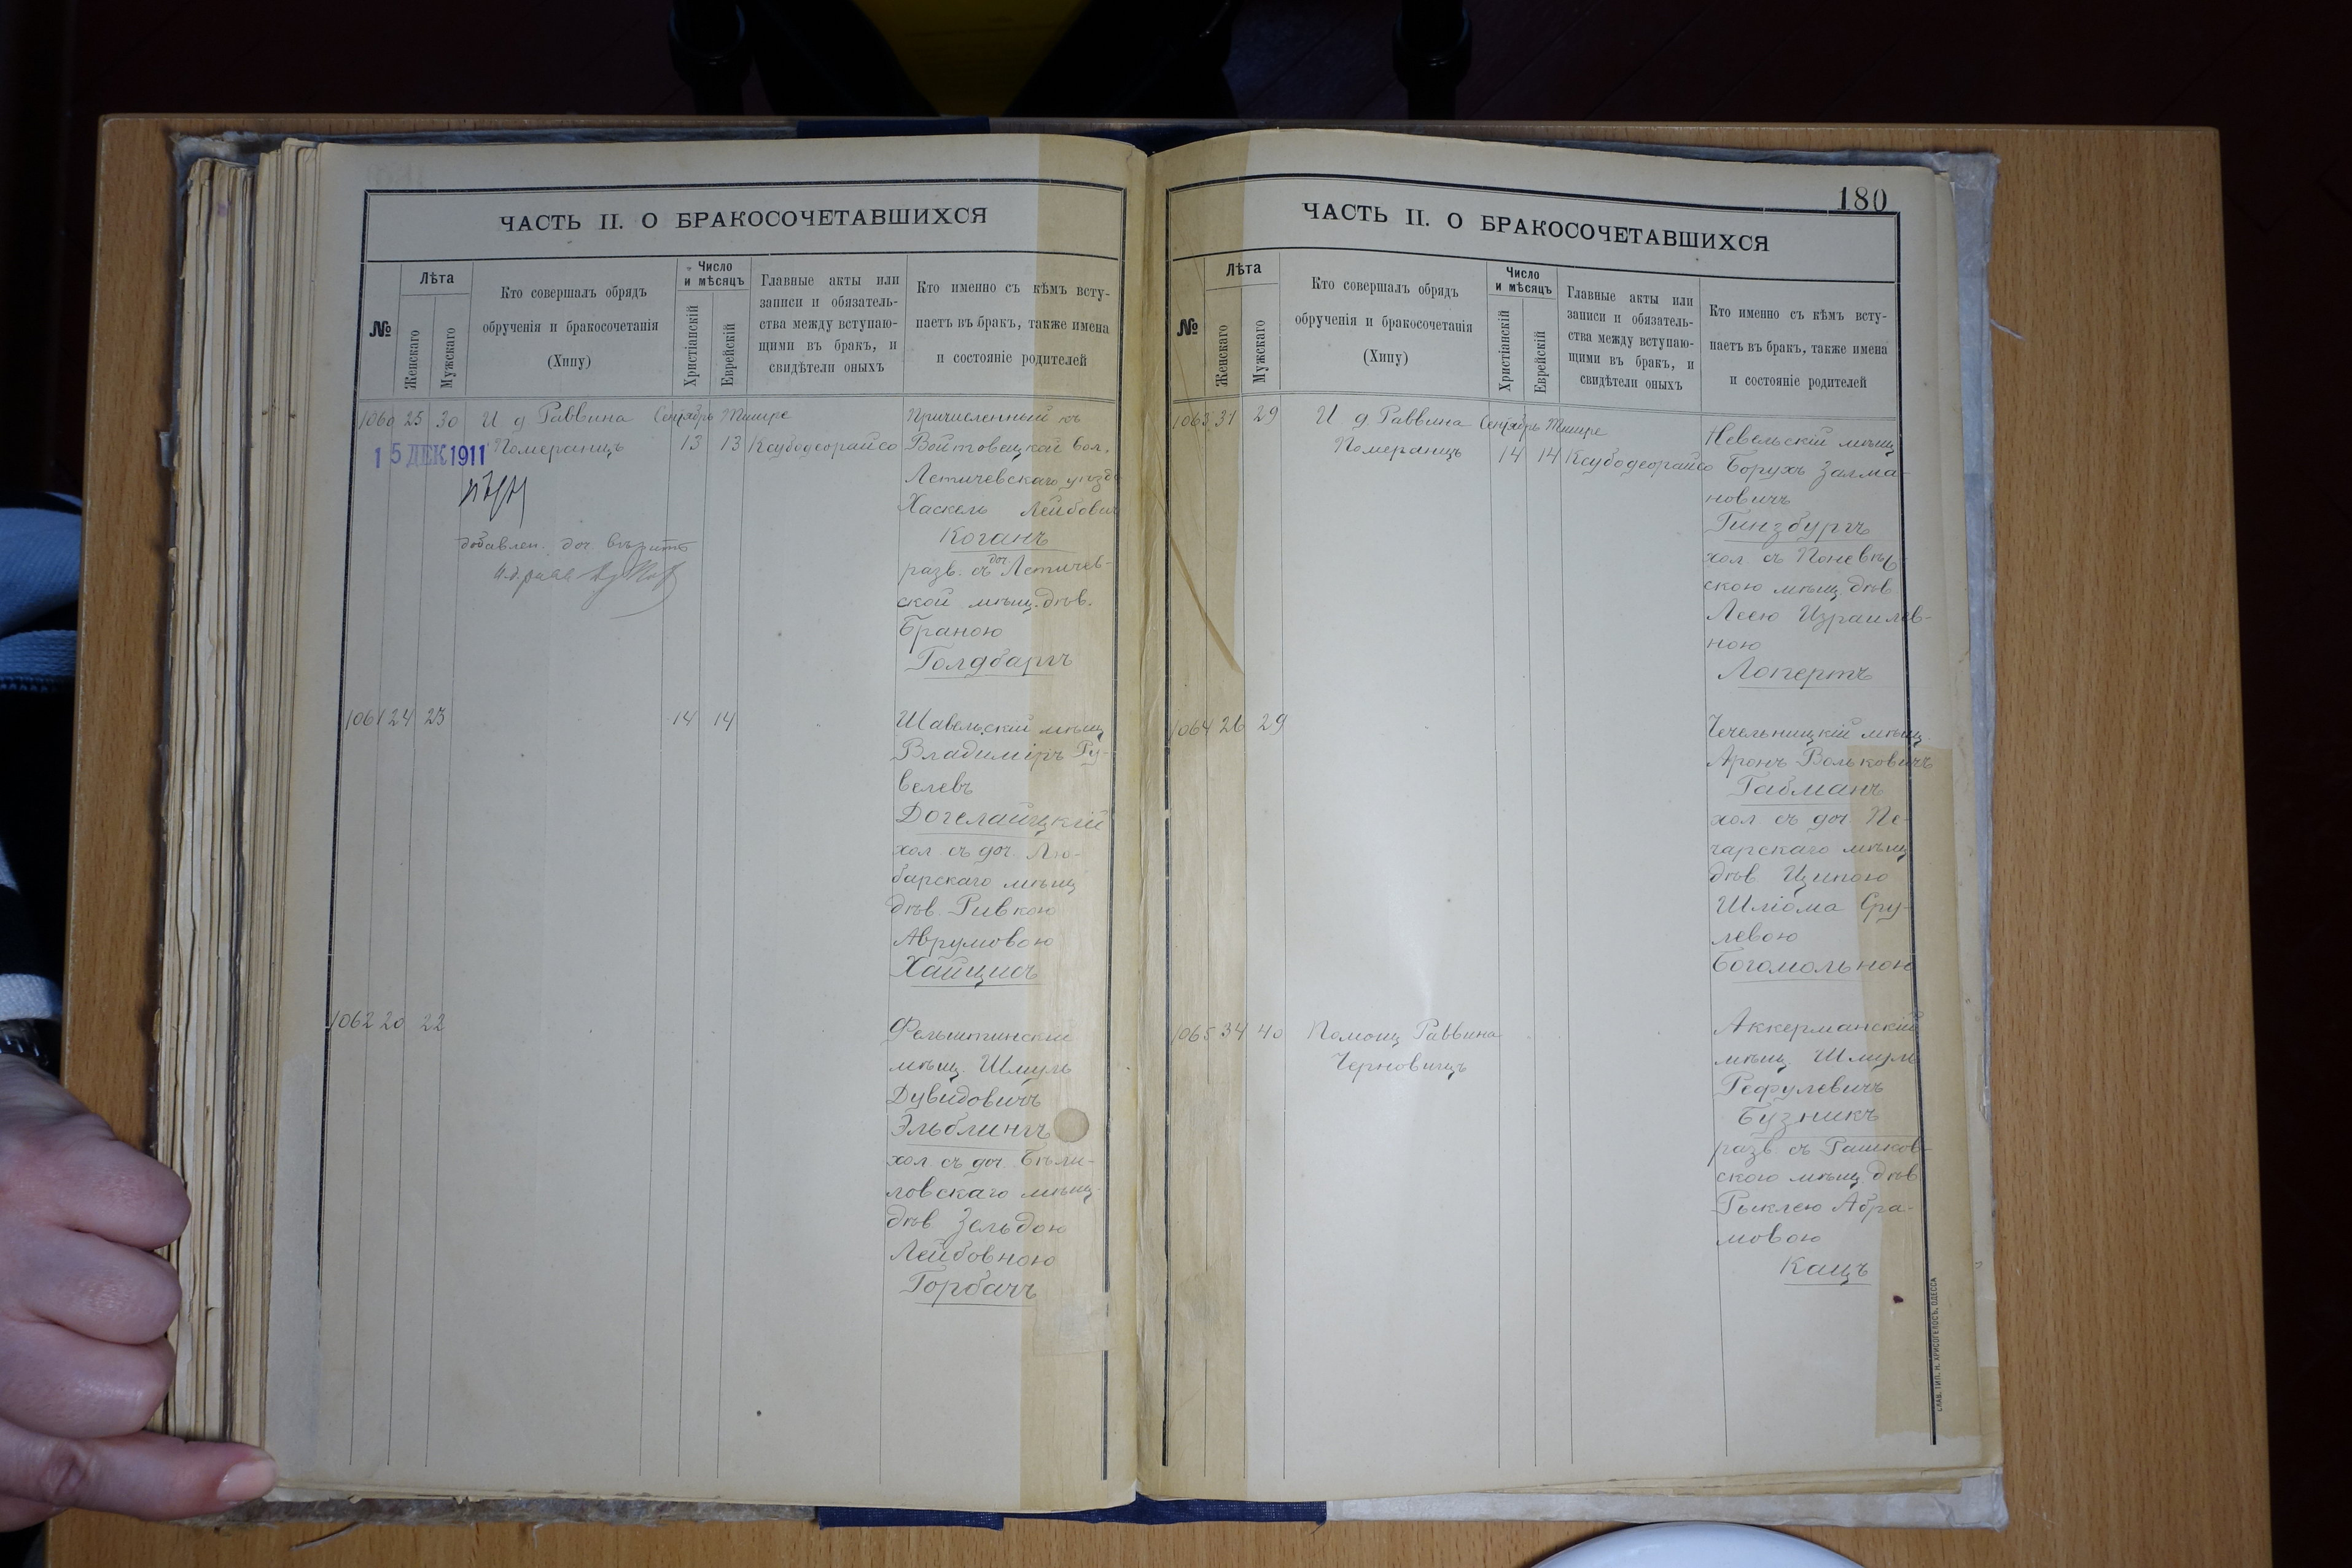 ЧАСТЬ II. О БРАКОСОЧЕТАВШИХСЯ
№
Лѣта
Женскаго
Мужскаго
Кто совершалъ обрядъ
обрученія и бракосочетанія
(Хипу)
Число
и мѣсяцъ
Христіанскій
Еврейскій
Главные акты или
записи и обязатель-
ства между вступаю-
щими въ бракъ, и
свидѣтели оныхъ
Кто именно съ кѣмъ всту-
паетъ въ бракъ, также имена
и состояніе родителей
1060 25 30 И д Раввина Сентябрь Тишре
Померанцъ 13 13 Ксубодеорайсо
15 ДЕК 1911
добавлен. доч. вѣрить
Причисленный къ
Войтовецкой вол.
Летичевскаго уѣзда
Хаскель Лейбович
Коганъ
разв. съ доч Летичев-
ской мѣщ. дѣв.
Браною
Голдбаргъ
1061 24 23 14 14
Шавельский мѣщ
Владимiръ Ру-
велевъ
Догелайцкій
хол. съ доч. Лю-
барскаго мѣщ
дѣв. Ривкою
Аврумовою
Хайцисъ
1062 20 22
Фельштинский
мѣщ. Шмуль
Дувидовичъ
Эльблингъ
хол съ доч. Бѣли-
ловскаго мѣщ.
дѣв. Зельдою
Лейбовною
Горбачъ
180
ЧАСТЬ II. О БРАКОСОЧЕТАВШИХСЯ
№
Лѣта
Женскаго
Мужскаго
Кто совершалъ обрядъ
обрученія и бракосочетанія
(Хипу)
Число
и мѣсяцъ
Христіанскій
Еврейскій
Главные акты или
записи и обязатель-
ства между вступаю-
щими въ бракъ, и
свидѣтели оныхъ
Кто именно съ кѣмъ всту-
паетъ въ бракъ, также имена
и состояніе родителей
1063 31 29 И д Раввина Сентябрь Тишре
Померанцъ 14 14 Ксубодеорайсо
Невельскій мѣщ
Борухъ Залма-
новичъ
Гинзбургъ
хол. съ Поневѣж
скою мѣщ. дѣв
Леею Израилев-
ною
Лопертъ
1064 26 29
Чечельницкій мѣщ.
Аронъ Вольковичъ
Габманъ
хол. съ доч. Пе-
чарскаго мѣщ
дѣв. Ципою
Шліома Сру-
левою
Богомольною
1065 34 40 Помощ Раввина
Черновицъ
Аккерманскій
мѣщ. Шмуль
Рефулевичъ
Бузникъ
разв. съ Рашков-
скою мѣщ. дѣв
Рыклею Абра-
мовою
Кацъ
СЛАВ. ТИП. Н. ХРИСОГЕЛОСЪ, ОДЕССА